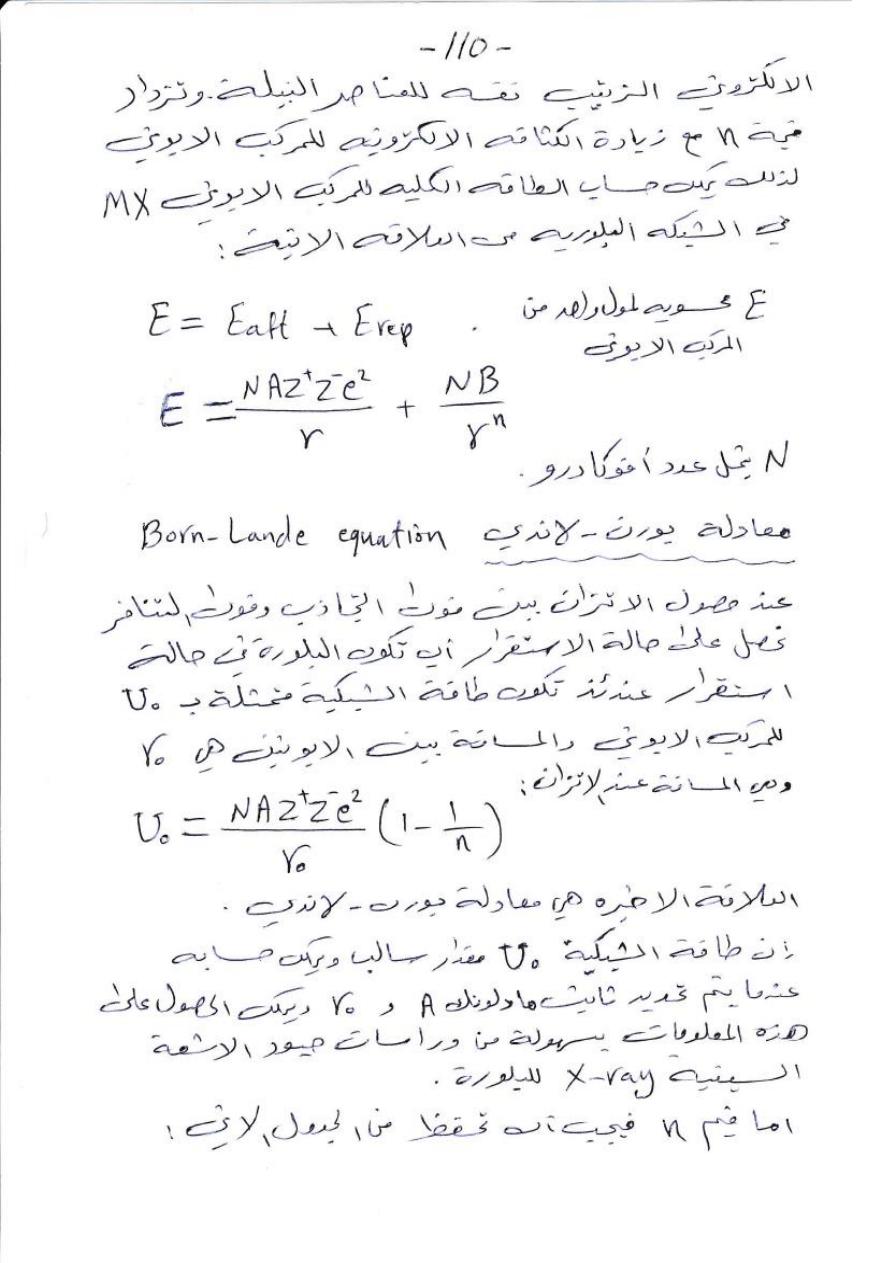 -110-
الالكتروني الترتيب نفسه للعناصر النبيلة. وتزداد
قيمة n مع زيادة الكثافه الالكترونيه للمركب الايوني
لذلك يمكن حساب الطاقه الكليه للمركب الايوني MX
في الشبكه البلوريه من العلاقه الاتية :
E = Eatt + Erep . E محسوبه لمول واحد من
المركب الايوني
E = NAZ⁺Z⁻e²/r + NB/rⁿ
N يمثل عدد أفوكادرو .
معادلة بورن - لاندي Born-Lande equation
عند حصول الاتزان بين قوى التجاذب وقوى التنافر
نحصل على حالة الاستقرار أي تكون البلورة في حالة
استقرار عندئذ تكون طاقة الشبكية متمثلة بـ U₀
للمركب الايوني والمسافة بين الايونين هي r₀
وهي المسافة عند الاتزان :
U₀ = NAZ⁺Z⁻e²/r₀ (1 - 1/n)
العلاقة الاخيره هي معادلة بورن - لاندي .
إن طاقة الشبكية U₀ مقدار سالب ويمكن حسابه
عندما يتم تحديد ثابت مادلونك A و r₀ ويمكن الحصول على
هذه المعلومات بسهولة من دراسات حيود الاشعة
السينية X-ray للبلورة .
اما قيم n فيجب أن تحفظ من الجدول الاتي :